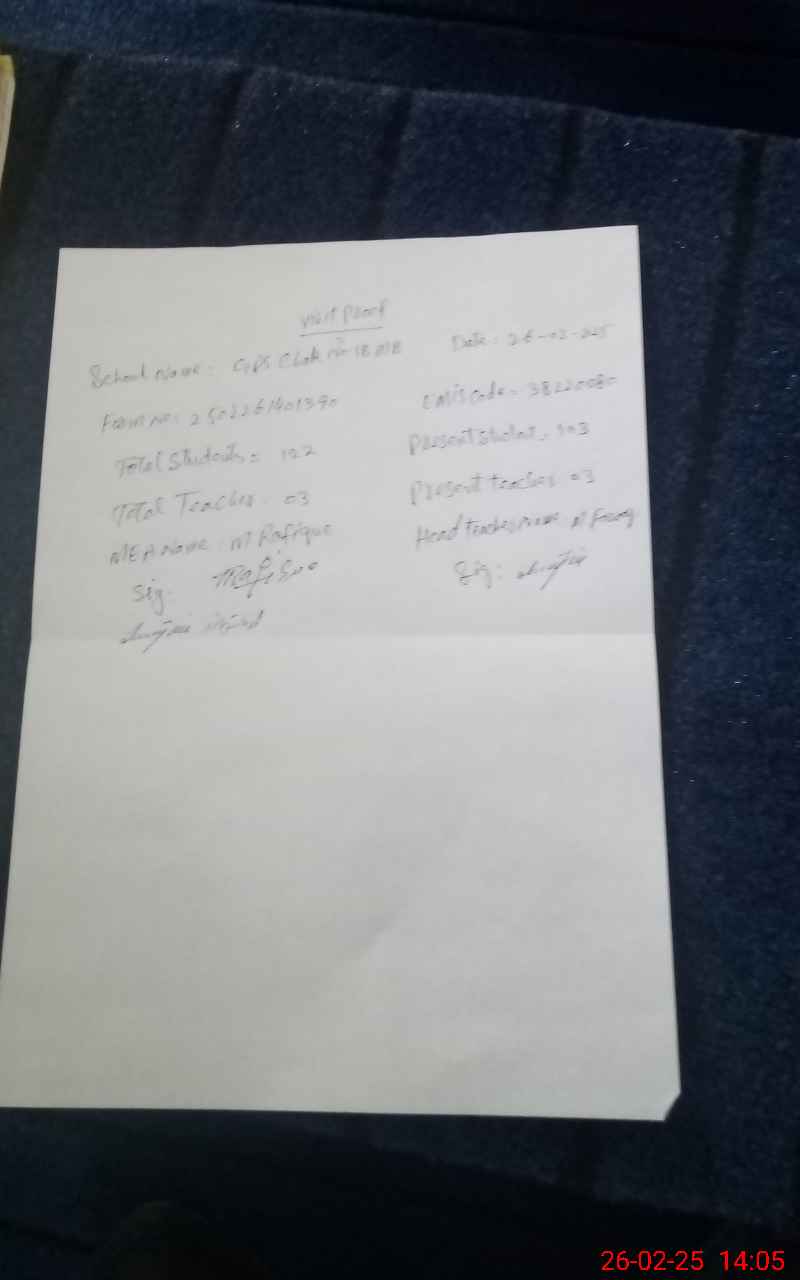 Visit Proof
School Name: GPS Chak No 18 Date: 26-02-2025
Form No: EMIS code: 38220080
Total Students = 122 Present student: 103
Total Teacher: 03 Present teacher: 03
MEA Name: M Rafique Head teacher name: M Farooq
Sig: Sig:
26-02-25 14:05